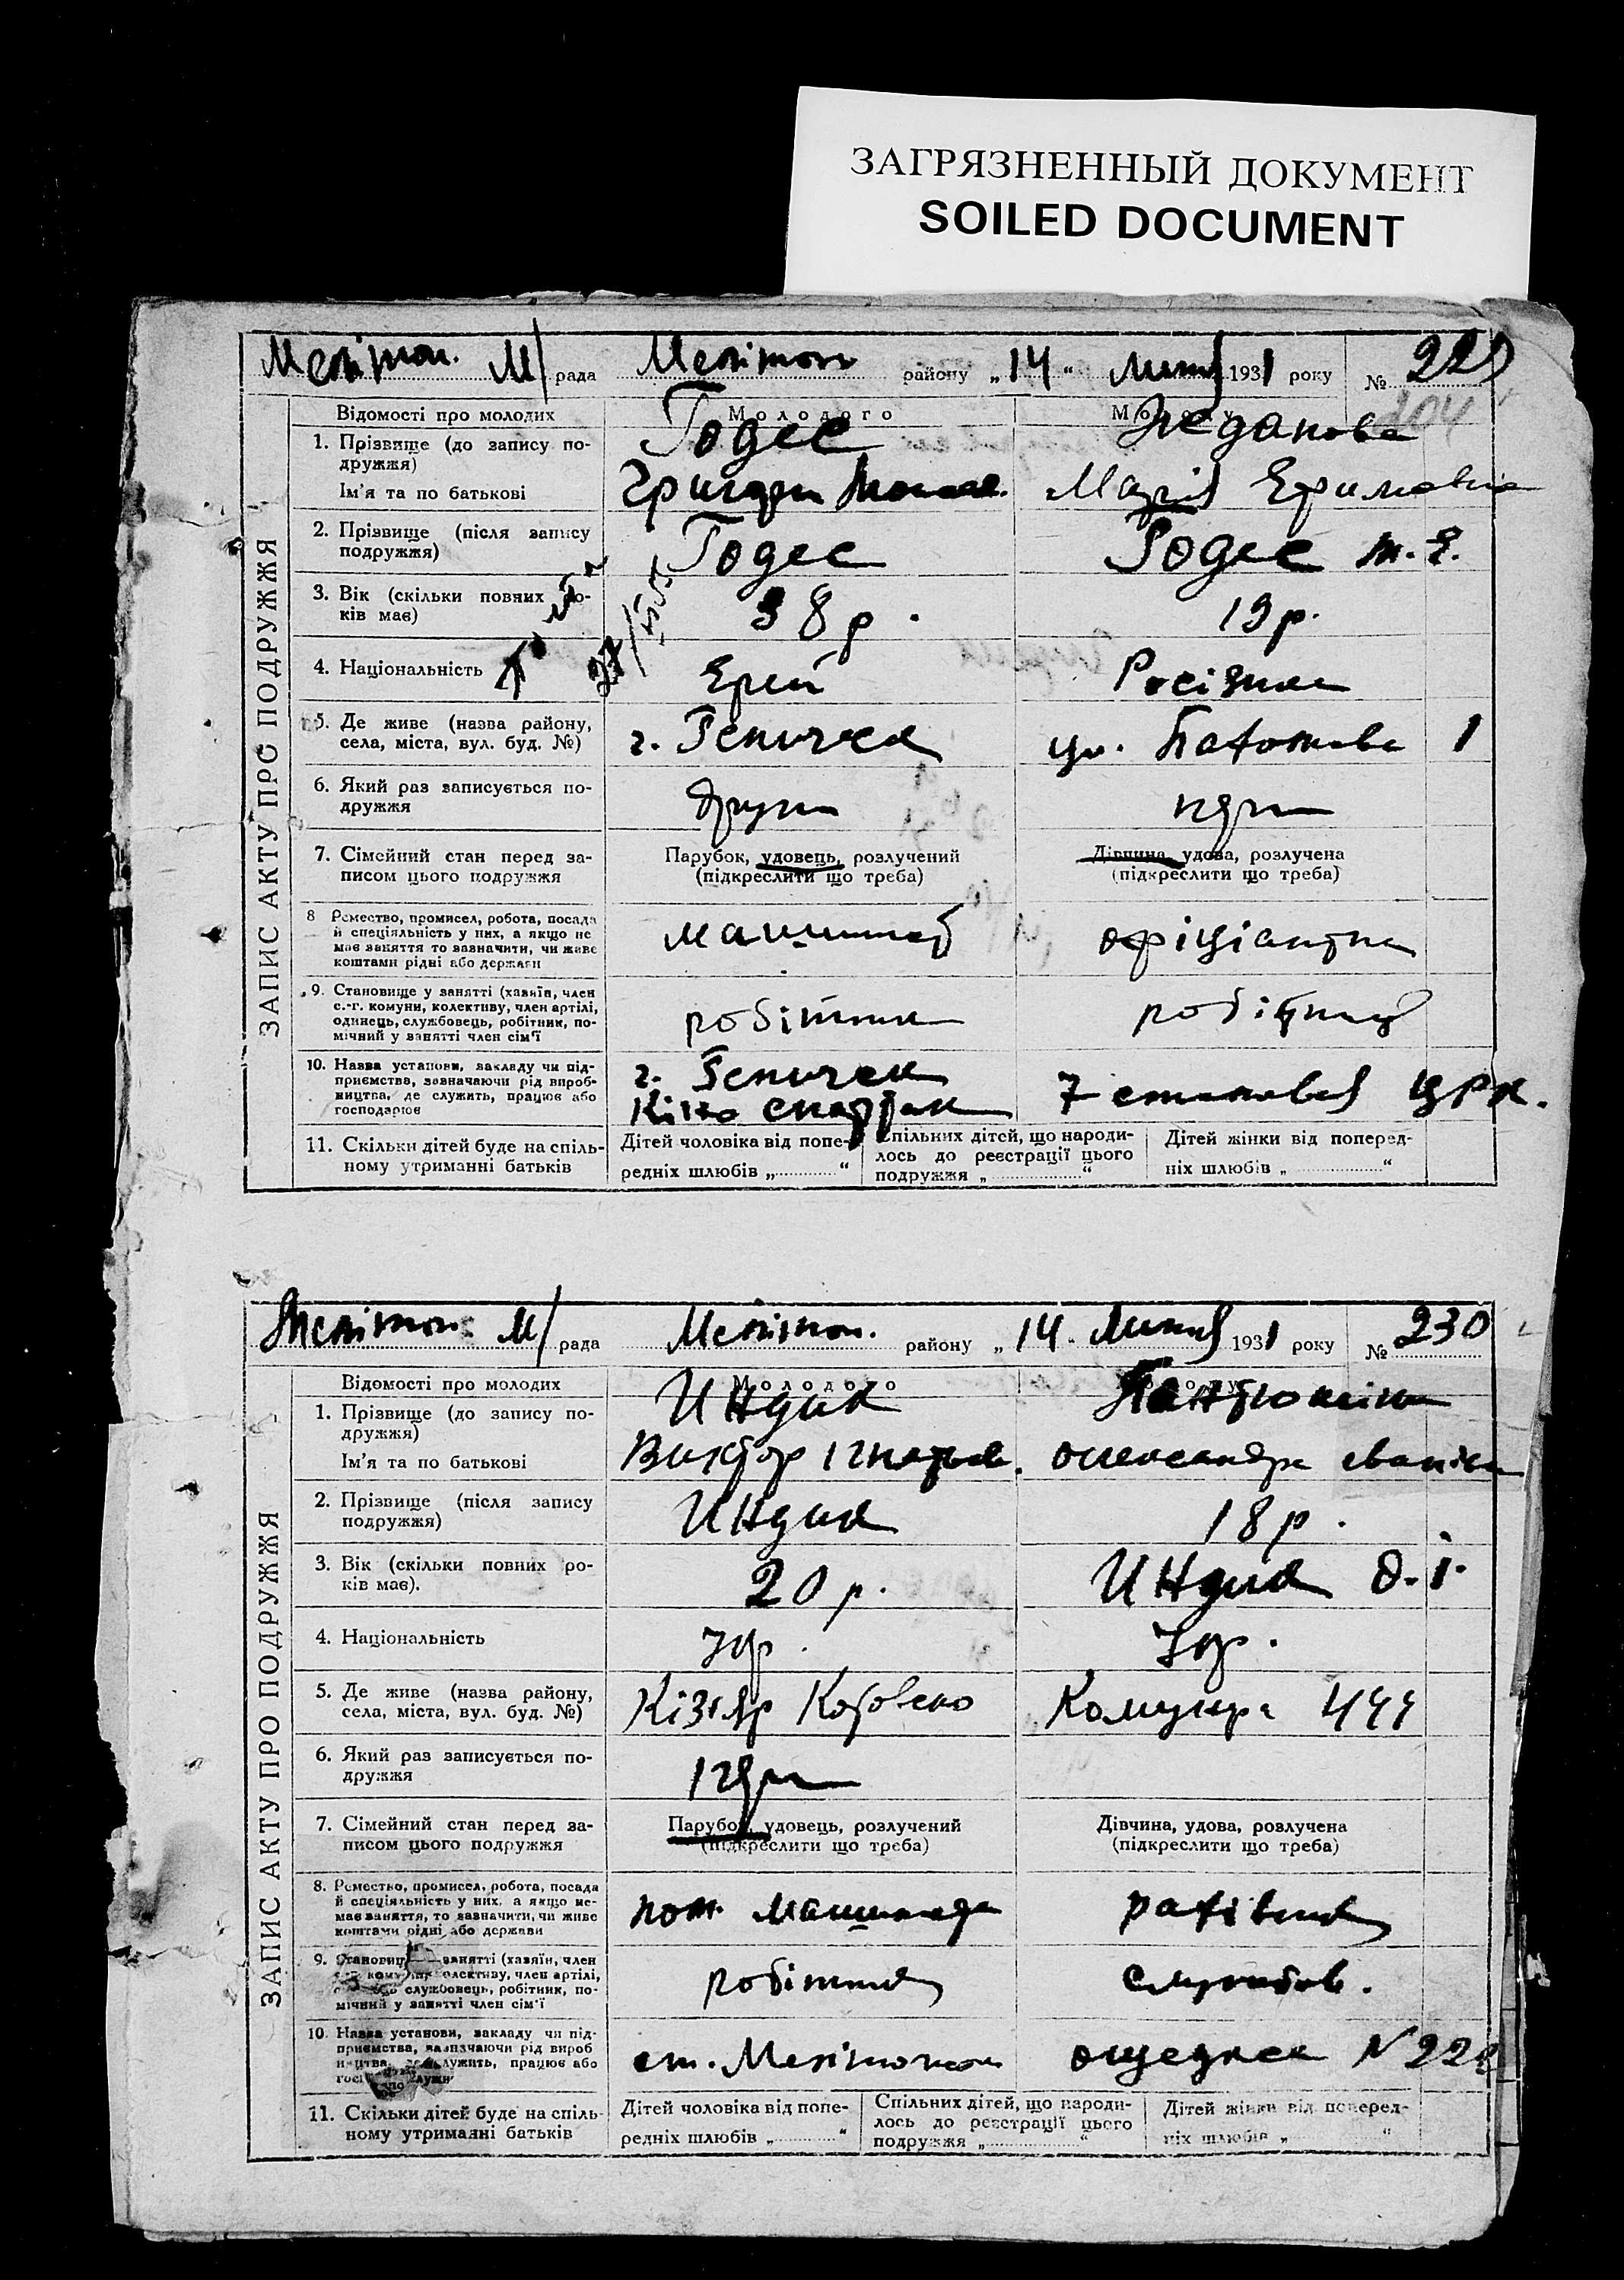 ЗАГРЯЗНЕННЫЙ ДОКУМЕНТ
SOILED DOCUMENT
Мелітоп. М/ рада Мелітоп району „14“ 1931 року № 229
204
ЗАПИС АКТУ ПРО ПОДРУЖЖЯ
Відомості про молодих Молодого Молоду
1. Прізвище (до запису по-
дружжя) Годес
Ім'я та по батькові Марія
2. Прізвище (після запису
подружжя) Годес Годес М. Е.
3. Вік (скільки повних ро-
ків має) 38 р. 19 р.
4. Національність Еврей Росіянка
5. Де живе (назва району,
села, міста, вул. буд. №) г. Геническ 1
6. Який раз записується по-
дружжя други перш
7. Сімейний стан перед за-
писом цього подружжя
Парубок, удовець, розлучений
(підкреслити що треба)
Дівчина, удова, розлучена
(підкреслити що треба)
8 Ремество, промисел, робота, посада
й спеціяльність у них, а якщо не
має заняття то зазначити, чи живе
коштами рідні або держави
машиніст офіціантка
9. Становище у занятті (хазяїн, член
с.-г. комуни, колективу, член артілі,
одинець, службовець, робітник, по-
мічний у занятті член сім'ї
робітник робітниц
10. Назва установи, закладу чи під-
приємства, зазначаючи рід вироб-
ництва, де служить, працює або
господарює
г. Геническ
Кіно Спартак 7 столовая ЦРК.
11. Скільки дітей буде на спіль-
ному утриманні батьків
Дітей чоловіка від попе-
редніх шлюбів „ “
Спільних дітей, що народи-
лось до реєстрації цього
подружжя „ “
Дітей жінки від поперед-
ніх шлюбів „ “
Мелітоп. М/ рада Мелітоп. району „14 1931 року № 230
ЗАПИС АКТУ ПРО ПОДРУЖЖЯ
Відомості про молодих Молодого Молоду
1. Прізвище (до запису по-
дружжя) Индик
Ім'я та по батькові Виктор Ігнатьев. Олександра Іванівна
2. Прізвище (після запису
подружжя) Индик 18 р.
3. Вік (скільки повних ро-
ків має). 20 р. Индик О. І.
4. Національність Укр. Укр.
5. Де живе (назва району,
села, міста, вул. буд. №) Кізіяр
6. Який раз записується по-
дружжя
7. Сімейний стан перед за-
писом цього подружжя
Парубок, удовець, розлучений
(підкреслити що треба)
Дівчина, удова, розлучена
(підкреслити що треба)
8. Ремество, промисел, робота, посада
й спеціяльність у них, а якщо не-
має заняття, то зазначити, чи живе
коштами рідні або держави
пом. машиніста рахівник
9. Становище занятті (хазяїн, член
колективу, член артілі,
службовець, робітник, по-
мічний у занятті член сім'ї
робітник службов.
10. Назва установи, закладу чи під-
приємства, зазначаючи рід вироб
ництва, служить, працює або
ст. Мелітополь
11. Скільки дітей буде на спіль-
ному утриманні батьків
Дітей чоловіка від попе-
редніх шлюбів „ “
Спільних дітей, що народи-
лось до реєстрації цього
подружжя „ “
Дітей жінки від поперед-
ніх шлюбів „ “